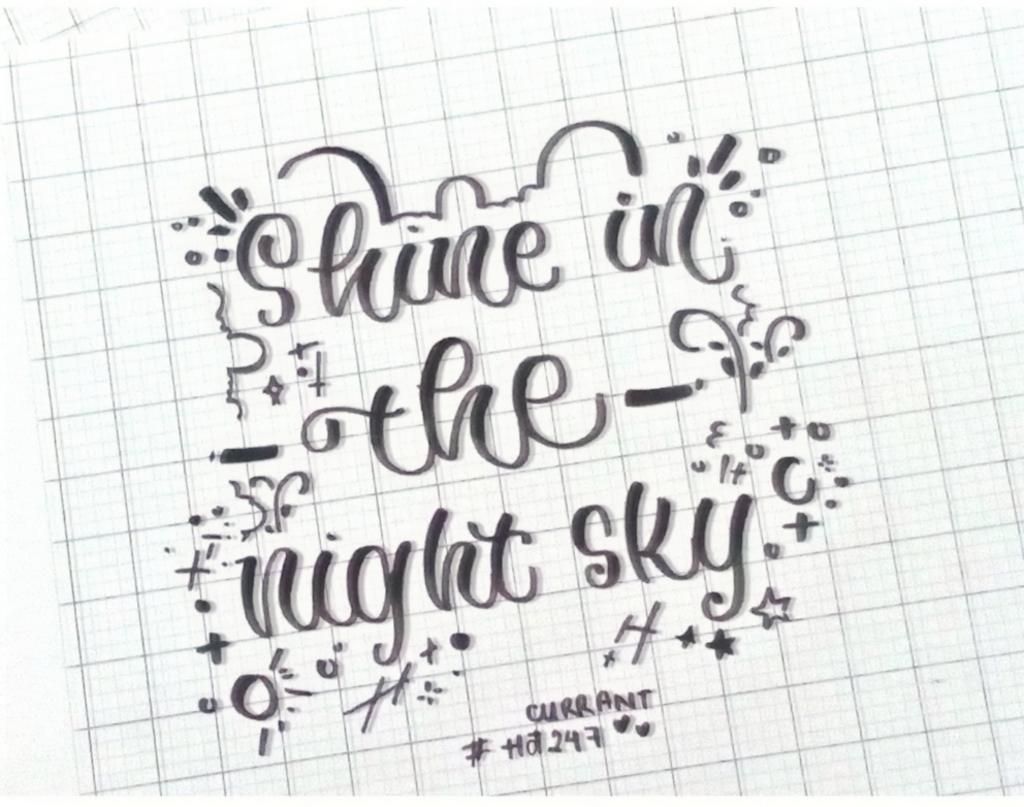 Shine in
the
night sky
CURRANT
#Hd247